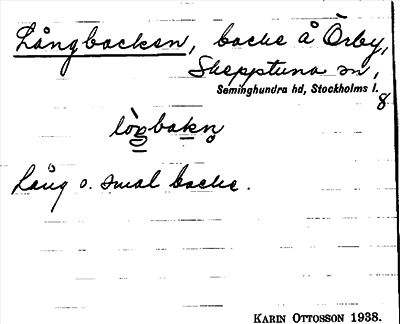 Långbacken, backe å Örby,
Skepptuna sn,
Seminghundra hd, Stockholms l.
8
Lång o. smal backe.
KARIN OTTOSSON 1938.